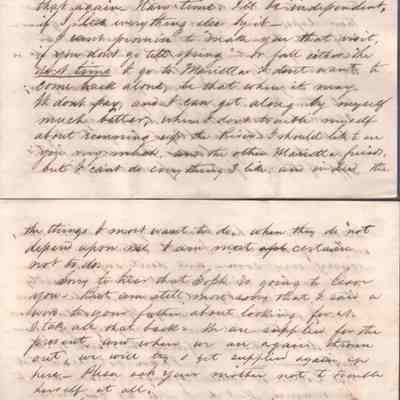 that again. Hard times I'll be independent,
if I lose everything else by it.
I can't promise to make you that visit,
if you don't go till spring or fall either. The
next time I go to Marietta I don't want to
come back alone, be that when it may.
It don't pay, and I can get along by myself
much better, when I don't trouble myself
about running up the River. I should like to see
you very much, and the other Marietta friends,
but I can't do everything I like, and indeed the
the things I most want to do, when they do not
depend upon me I am most apt certain
not to do.
Sorry to hear that Soph is going to leave
you. But am still more sorry that I said a
word to your father about looking for us.
I take all that back. We are supplied for the
present, and when we are again thrown
out, we will try & get supplied again up
here. Please ask your mother not to trouble
herself at all.